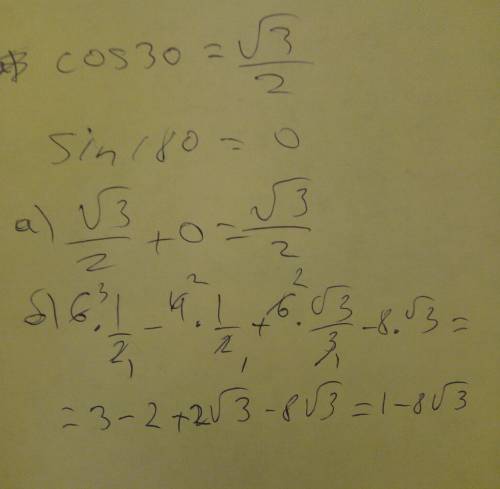 cos30 = √3/2
sin180 = 0
а) √3/2 + 0 = √3/2
б) 6³ · 1/2₁ − 4² · 1/2₁ + 6² · √3/3₁ − 8 · √3 =
= 3 − 2 + 2√3 − 8√3 = 1 − 8√3